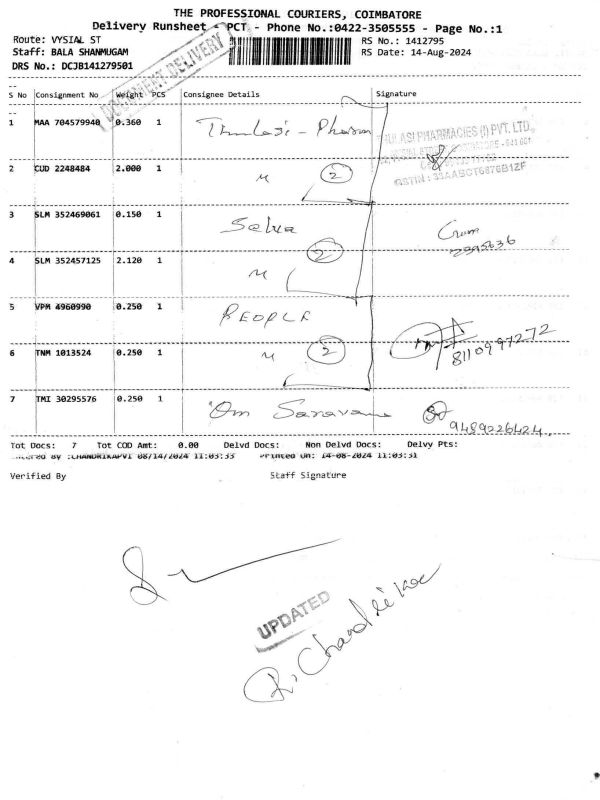 THE PROFESSIONAL COURIERS, COIMBATORE
Delivery Runsheet - PCT - Phone No.:0422-3505555 - Page No.:1
Route: VYSIAL ST
RS No.: 1412795
Staff: BALA SHANMUGAM
RS Date: 14-Aug-2024
DRS No.: DCJB141279501
DOCUMENT DELIVERY
S No Consignment No Weight PCS Consignee Details Signature
1 MAA 704579940 0.360 1 Thulasi - Pharm
THULASI PHARMACIES (I) PVT. LTD.
2 CUD 2248484 2.000 1 2
3 SLM 352469061 0.150 1 Selva
4 SLM 352457125 2.120 1 2
5 VPM 4960990 0.250 1 PEOPLE
6 TNM 1013524 0.250 1 2 8110997272
7 TMI 30295576 0.250 1 Om Saravana 9489226424
Tot Docs: 7 Tot COD Amt: 0.00 Delvd Docs: Non Delvd Docs: Delvy Pts:
Entered By :CHANDRIKAPVI 08/14/2024 11:03:33 Printed On: 14-08-2024 11:03:31
Verified By Staff Signature
UPDATED
R. Chandrika